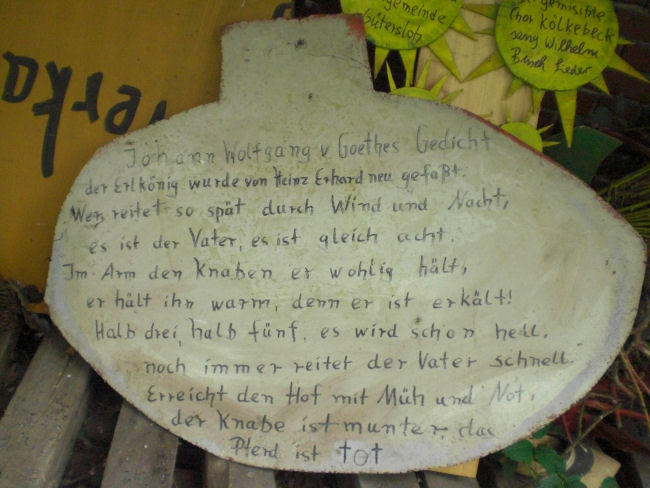 gemeinde
Gütersloh
gemischte
Chor Kölkebeck
sang Wilhelm
Busch Lieder
Johann Wolfgang v Goethes Gedicht
der Erlkönig wurde von Heinz Erhard neu gefaßt.
Wer reitet so spät durch Wind und Nacht,
es ist der Vater, es ist gleich acht.
Im Arm den Knaben er wohlig hält,
er hält ihn warm, denn er ist erkält!
Halb drei, halb fünf, es wird schon hell.
noch immer reitet der Vater schnell.
Erreicht den Hof mit Müh und Not,
der Knabe ist munter, das
Pferd ist tot